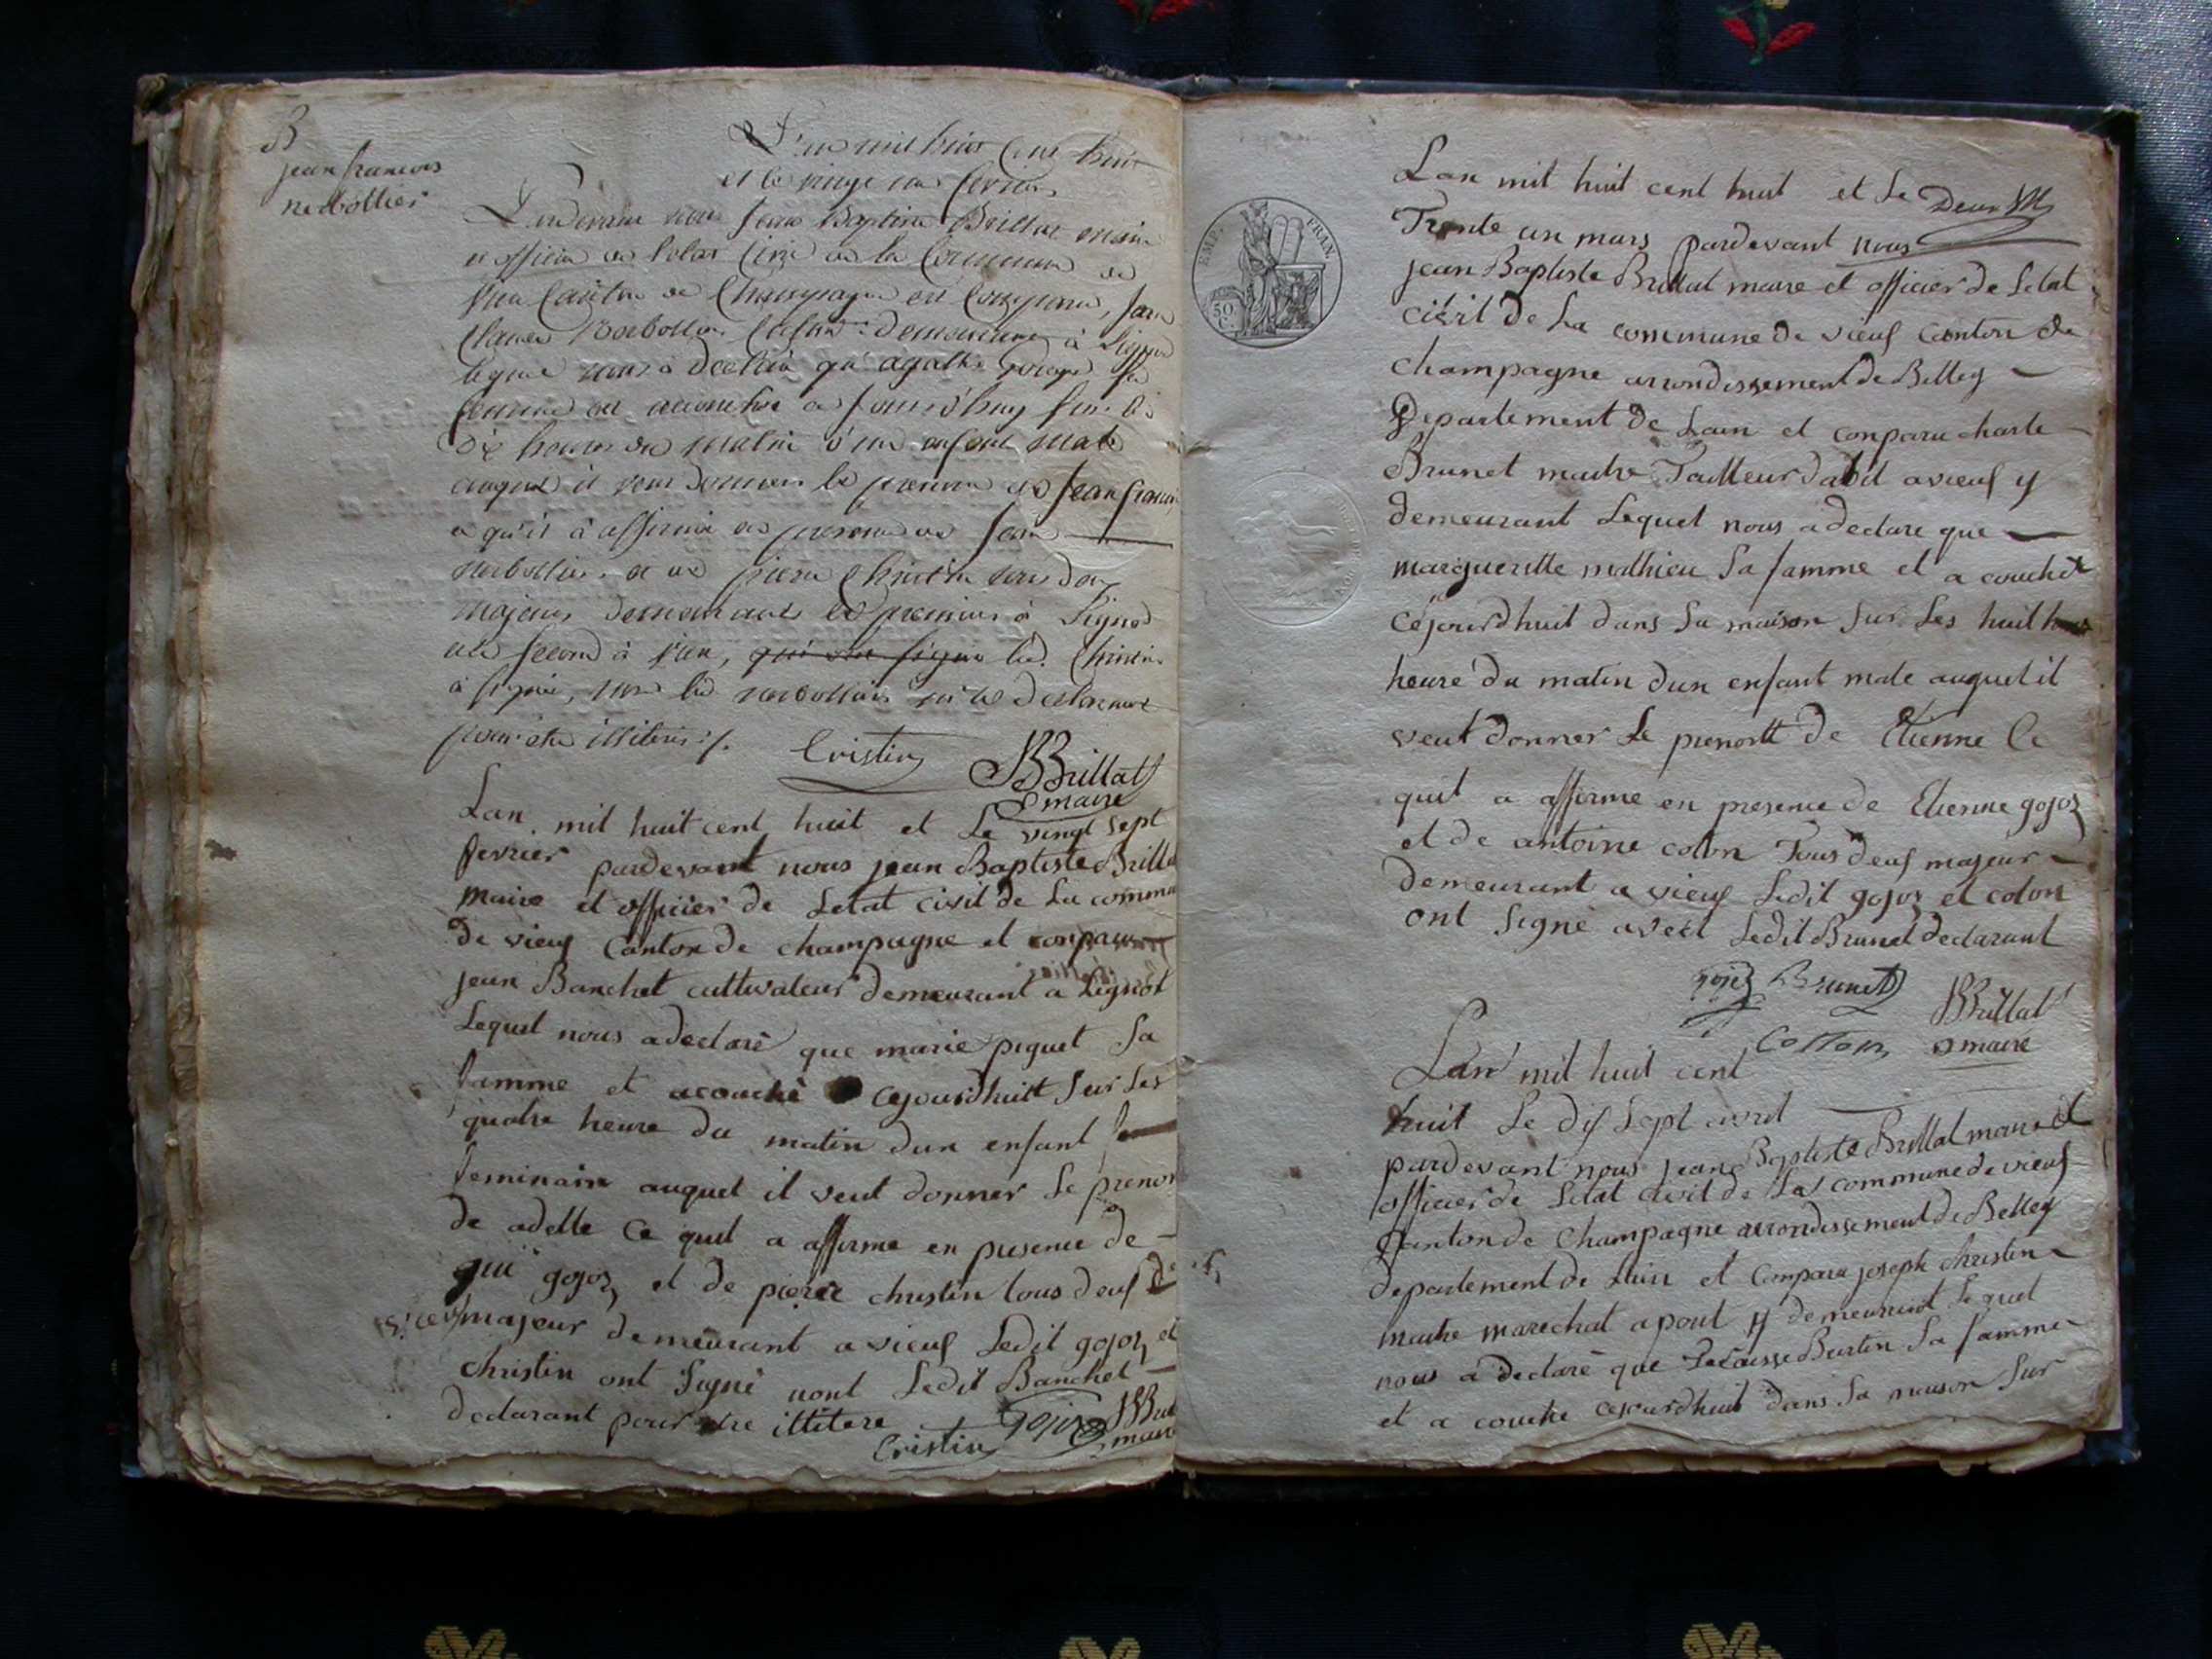 B
jean francois
nerbollier
L'an mil huit Cent huit
et le vingt un fevrier
Pardevant nous Jean Baptiste Brillat maire
et officier de l'etat Civil de la Commune de
Vieu Canton de Champagne est Comparu, Jean
demeurant à
lequel nous à declaré qu'agathe sa
femme est accouchée ce jourd'huy sur les
dix heures du matin d'un enfant male
auquel il veut donner le prenom de Jean francois
ce qu'il à affirmé en presence de Jean
nerbollier et de pierre Christin tous deux
majeurs demeurants le premier à Lignod
et le second à vieu, qui ont signé led. Christin
à signé, non led nerbollier ni le declarant
pour être illiteré ./.
Cristin
JBBrillat
maire
Lan mil huit cent huit et Le vingt sept
fevrier pardevant nous jean Baptiste Brillat
maire et officier de Letat civil de La commu
de vieuf Canton de champagne et conparu
jean Banchet cultivateur demeurant a Lignot
Lequel nous adeclaré que marie piquet Sa
famme et acouché cejourdhuit Sur Les
quatre heure du matin dun enfant
feminain auquel il veut donner Le prenom
de adelle ce quil a afferme en presence de
gui gojoz et de pierre christin tous deuf
majeur demeurant a vieuf Ledit gojoz et
christin ont Signé nont Ledit Banchet
declarant pour etre illitere
Cristin Gojoz JBBrillat
maire
EMP. FRAN.
50 C.
Lan mil huit cent huit et Le
Trente un mars pardevant nous
jean Baptiste Brillat maire et officier de Letat
civil de La commune de vieuf Canton de
champagne arrondissement de Belley
Departement de Lain et conparu charle
Brunet maitre Tailleur dabit avieuf y
demeurant Lequel nous adeclare que
margueritte mathieu Sa famme et a couché
cejourdhuit dans Sa maison Sur Les huit
heure du matin dun enfant male auquel il
veut donner Le prenom de Etienne Ce
quil a afferme en presence de Etienne gojoz
et de antoine colon Tous deuf majeur
demeurant a vieuf Ledit gojoz et colon
ont Signé avect Ledit Brunet declarant
gojoz Brunet JBBrillat
Collon maire
Lan mil huit cent
huit Le dif Sept avril
pardevant nous jean Baptiste Brillat maire et
officier de Letat civil de La commune de vieuf
Canton de Champagne arrondissement de Belley
departement de Lain et Comparu joseph christin
maitre marechal apont y demeurant Lequel
nous a declaré que Burtin Sa famme
et a couché cejourdhuit dans Sa maison Sur